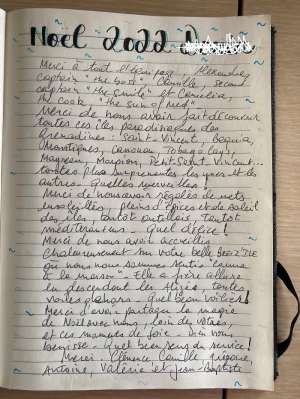 Noël 2022
Merci à tout l'équipage, Alexandre,
captain "the best", Camille, second
captain "the smile" et Cornelia,
the cook, "the sun of med"
Merci de nous avoir fait découvrir
toutes ces îles paradisiaques des
Grenadines: Saint-Vincent, Bequia,
Moustiques, Canouan, Tobago Cay,
Mayreau, Mopion, Petit Saint Vincent...
toutes plus surprenantes les unes et les
autres - Quelles merveilles!
Merci de nous avoir régalés de mets
ensoleillés, pleins d'épices et de soleil
des îles, tantôt antillais, tantôt
méditerranéens - Quel délice!
Merci de nous avoir accueillis
chaleureusement sur votre belle
où nous nous sommes sentis "comme
à la maison" - Elle a fière allure
en descendant les Alizés, toutes
voiles dehors - Quel beau voilier!
Merci d'avoir partagé la magie
de Noël avec nous, loin des vôtres,
et ces moments de joie à
Quel beau sens du service!
Merci - Clémence Camille Grégoire
Antoine, Valérie et Jean-Baptiste